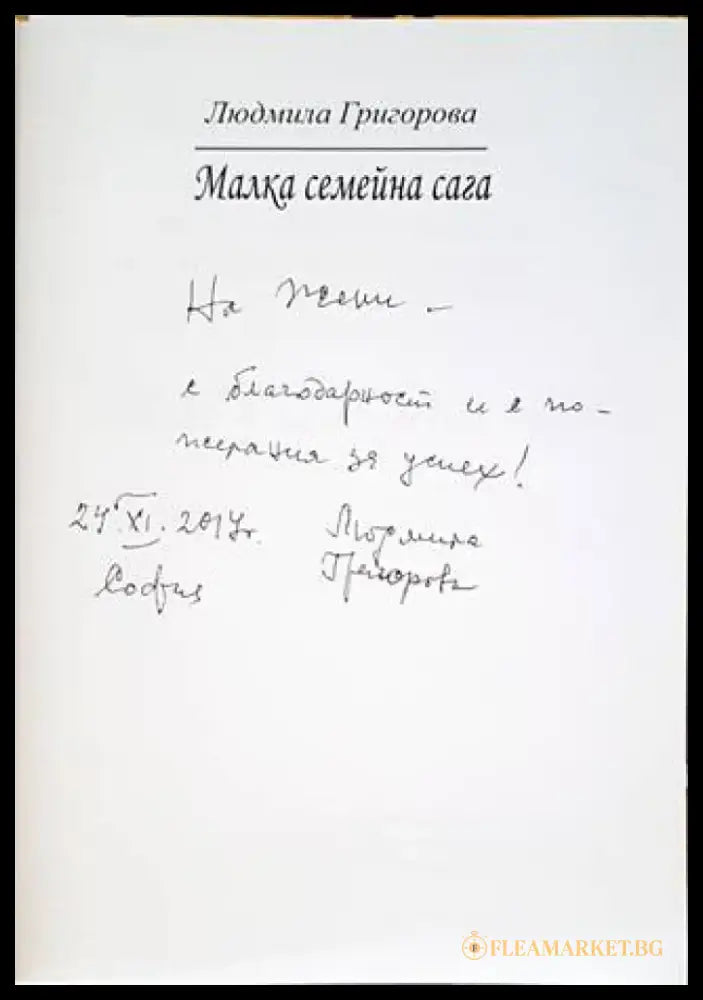 Людмила Григорова
Малка семейна сага
На Жени –
с благодарност и с по-
желания за успех!
24.XI.2014г. Людмила
София Григорова
FLEAMARKET.BG